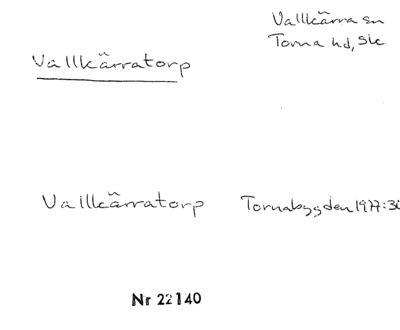 Vallkärra sn
Torna hd, Sk
Vallkärratorp
Vallkärratorp Tornabygden 1977:3
Nr 22140